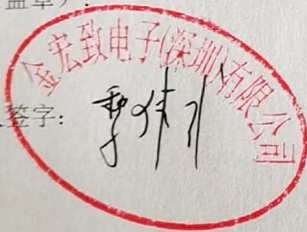 盖章）：
金宏致电子(深圳)有限公司
签字：